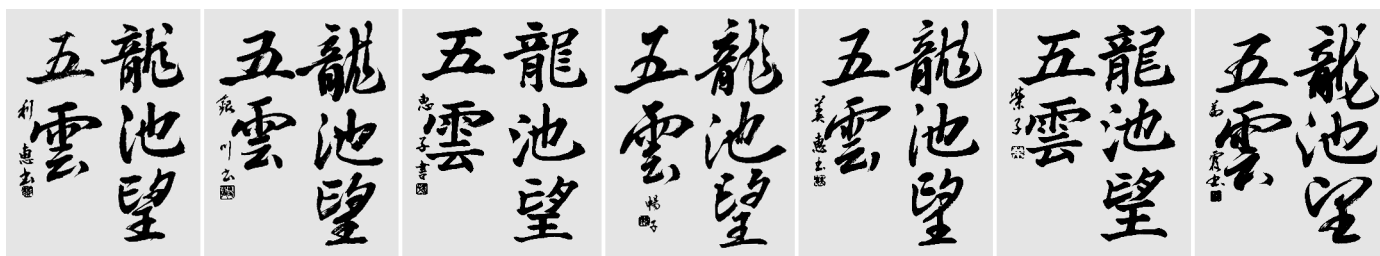 龍池望
五雲
利惠書
龍池望
五雲
銀川書
龍池望
五雲
惠子書
龍池望
五雲
暢子
龍池望
五雲
美惠書
龍池望
五雲
榮子
龍池望
五雲